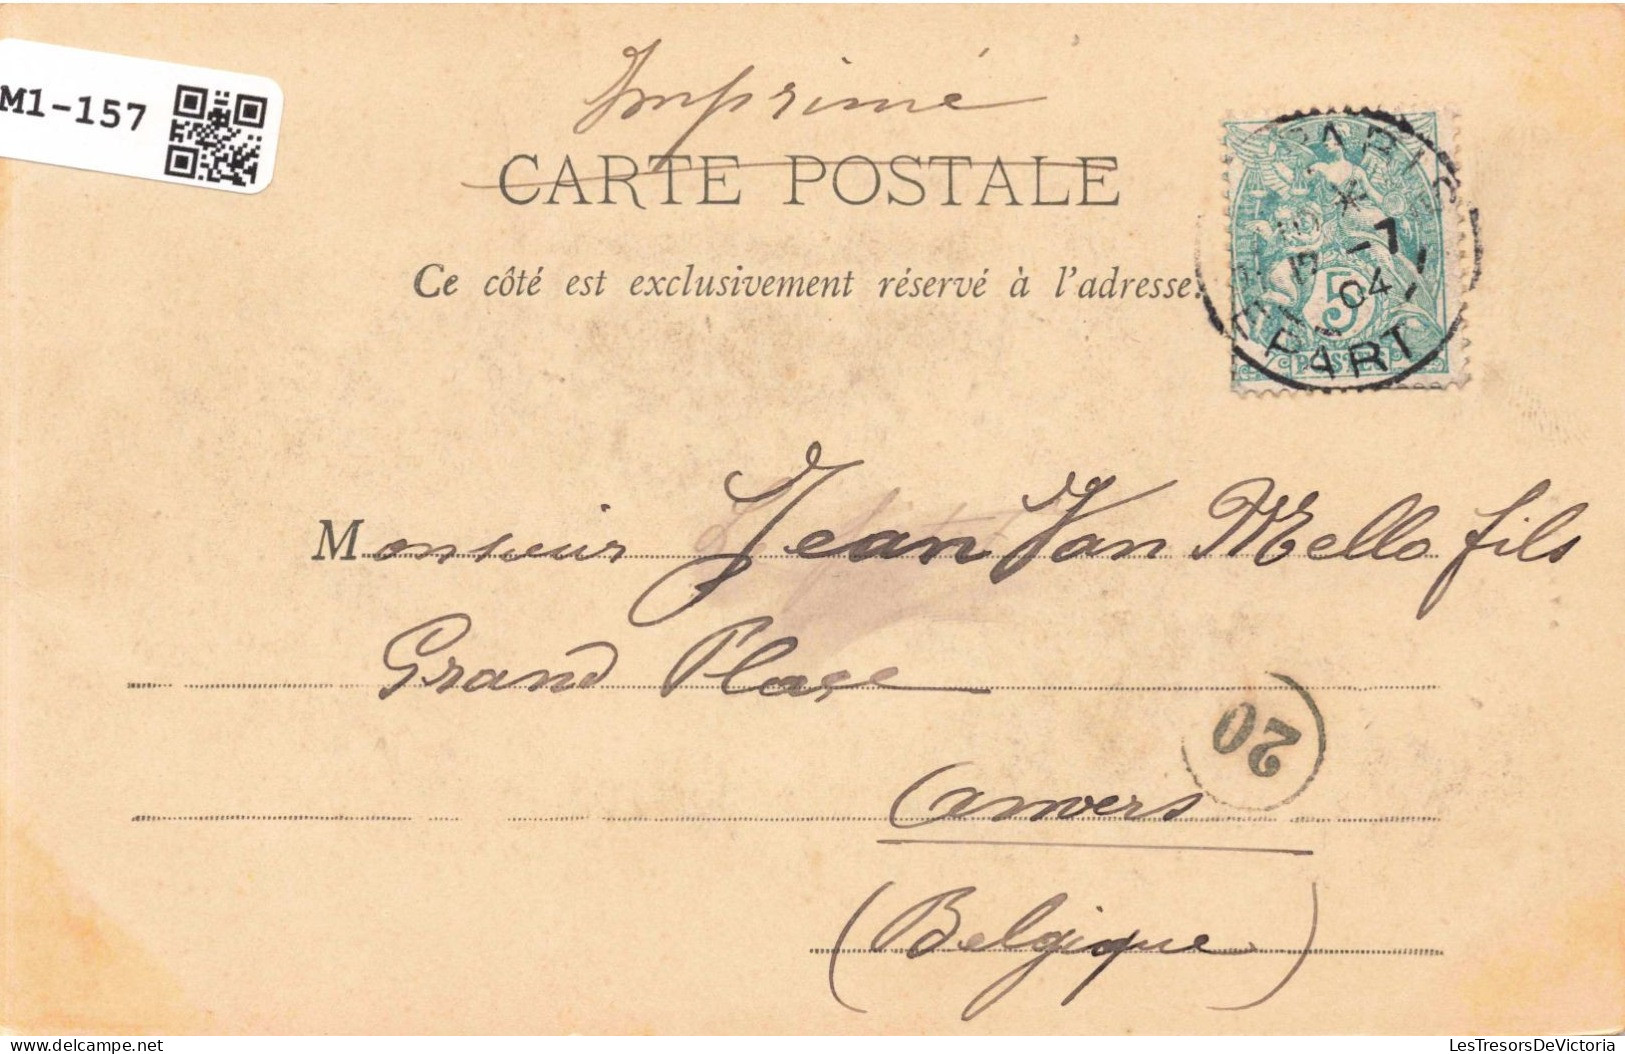 M1-157
Imprimé
CARTE POSTALE
Ce côté est exclusivement réservé à l'adresse.
PARIS
12 -7
04
DEPART
5
POSTES
Monsieur Jean Van Mello fils
Grand Place
20
Anvers
(Belgique)
LesTresorsDeVictoria